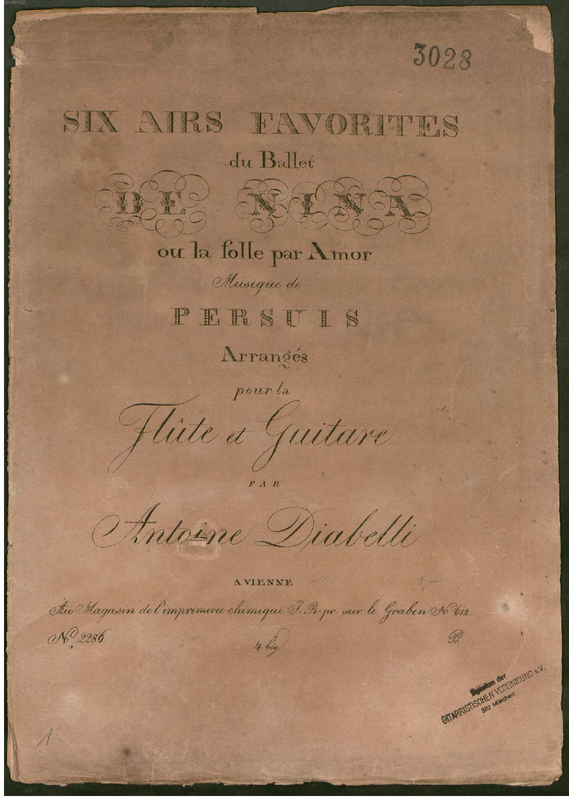 3028
SIX AIRS FAVORITES
du Ballet
DE NINA
ou la folle par Amor
Musique de
PERSUIS
Arrangés
pour la
Flûte et Guitare
PAR
Antoine Diabelli
A VIENNE
Au Magasin de l'imprimerie chimique I. R. pr. sur le Graben No. 612.
No. 2286
4 bog
GITARRISTISCHEN VEREINIGUNG e.V.
1